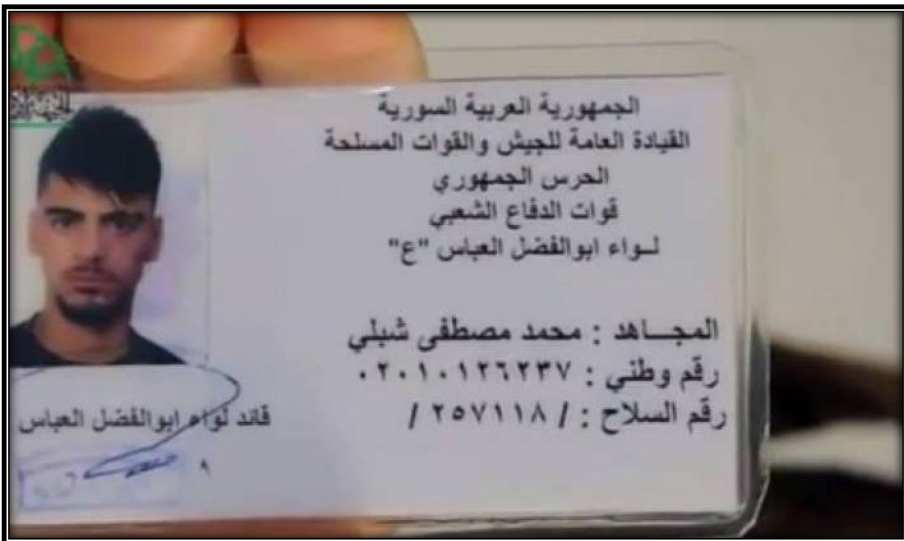 الجمهورية العربية السورية
القيادة العامة للجيش والقوات المسلحة
الحرس الجمهوري
قوات الدفاع الشعبي
لـواء ابوالفضل العباس "ع"
المجـــاهد : محمد مصطفى شبلي
رقم وطني : ٠٢٠١٠١٢٦٢٣٧
رقم السلاح : / ٢٥٧١١٨ /
قائد لواء ابوالفضل العباس